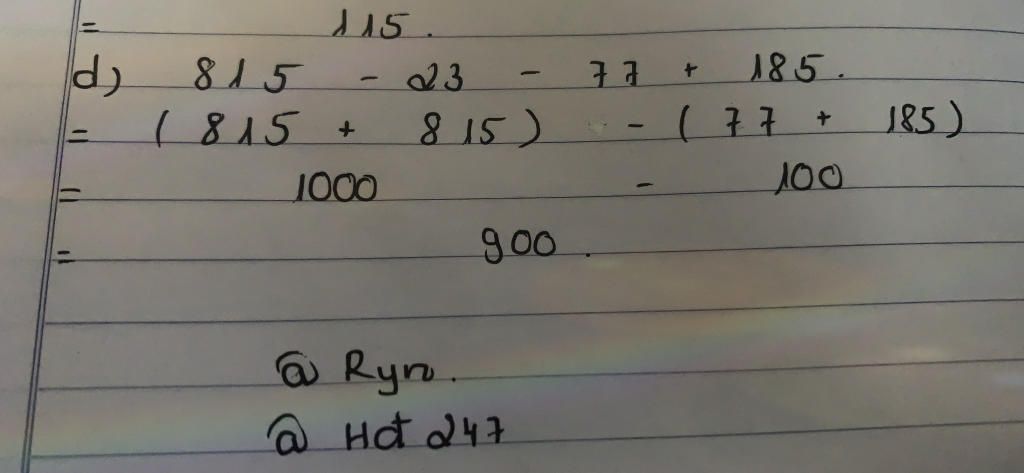 = 115.
d) 815 - 23 - 77 + 185.
= (815 + 815) - (77 + 185)
= 1000 - 100
= 900.
@ Ryn.
@ Hct 247